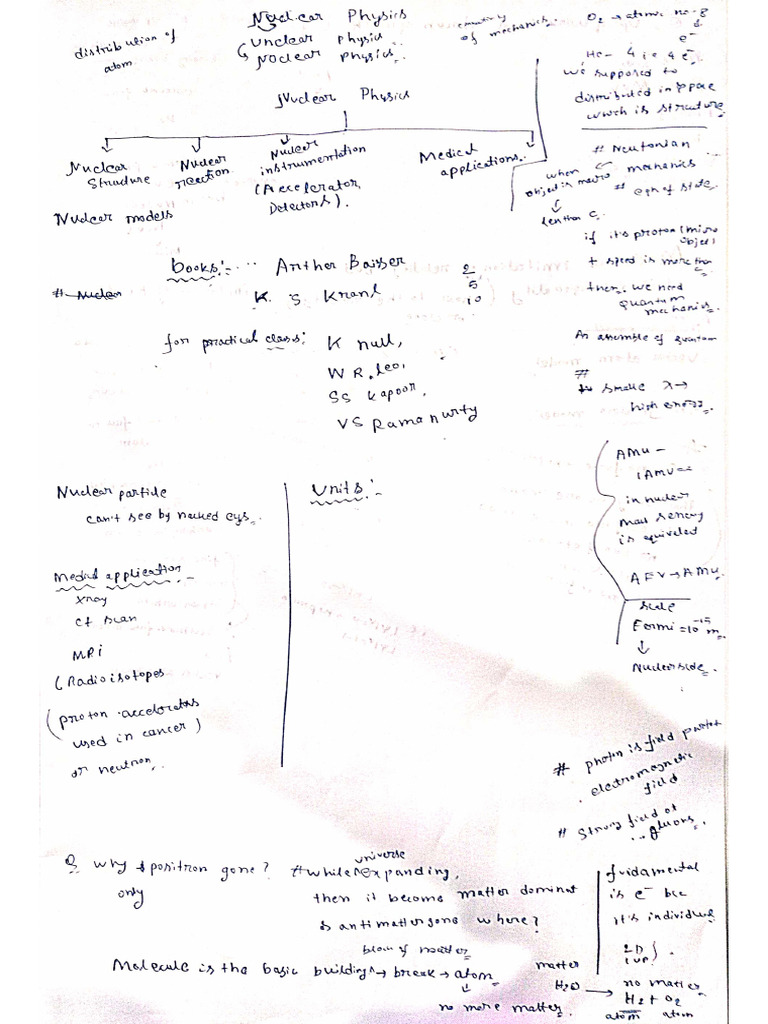 Nuclear Physics
Unclear Physics
Noclear Physics.
distribution of
atom
of mechanics.
O2 → atomic no-8
e-
He- 4 i.e 4 e-
we supposed to
distributed in space
which is structure
Nuclear Physics
Nuclear
Structure
Nuclear
reaction
Nuclear
instrumentation
(Accelerator,
Detectors).
Medical
applications.
Nuclear models
# Newtonian
mechanics
when
object in macro
# eqn of state
less than c.
if it's proton (micro
object
+ speed is more than
then, we need
quantum
mechanics.
books:- ... Arther Baiser
# Nuclear
K. S Kranl
2
5
10
for practical classes:
K null,
W R. Leo,
SS Kapoor,
VS Ramanurty
An assemble of quantum
#
smalle λ→
high energy.
Nuclear particle
can't see by nacked eys.
Units:-
AMU -
1AMU=
in nuclear
mass
is equivalent
→ AMU.
Fermi = 10-15 m.
↓
Nuclear side.
Medical application:-
xray
CT scan
MRI
(Radioisotopes
(proton accelerators
used in cancer)
or neutron.
# photon is field
electromagnetic
field
# Strong field of
.. gluons.
Q why positron gone?
only
universe
# while ^ expanding,
then it become matter dominat
& antimatter gone where?
fudamental
is e- bcz
it's individual
2D
1UP
).
Molecule is the basic building ^ → break → atom
block of matter
↓
no more matter.
matter
H2O → no matter.
H2 + O2
atom atom